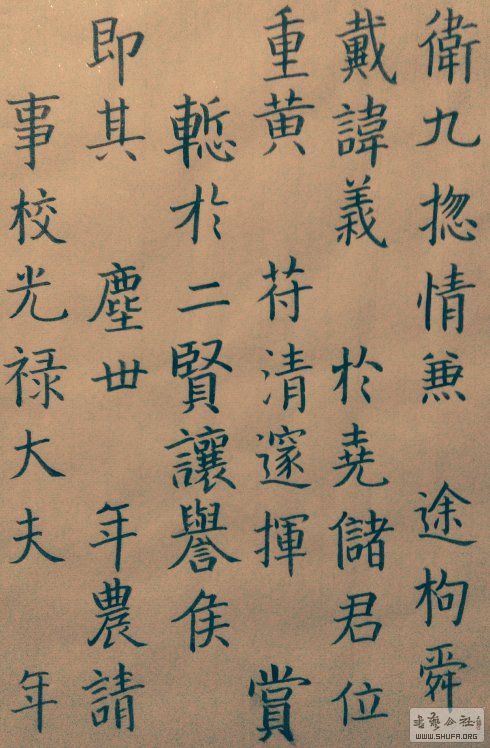 衛九揔情兼 途枸舜
戴諱義 於堯儲君位
重黄 苻清邃揮 賞
慙於二賢讓譽侯
即其 塵世 年農請
事校光禄大夫 年
WWW.SHUFA.ORG